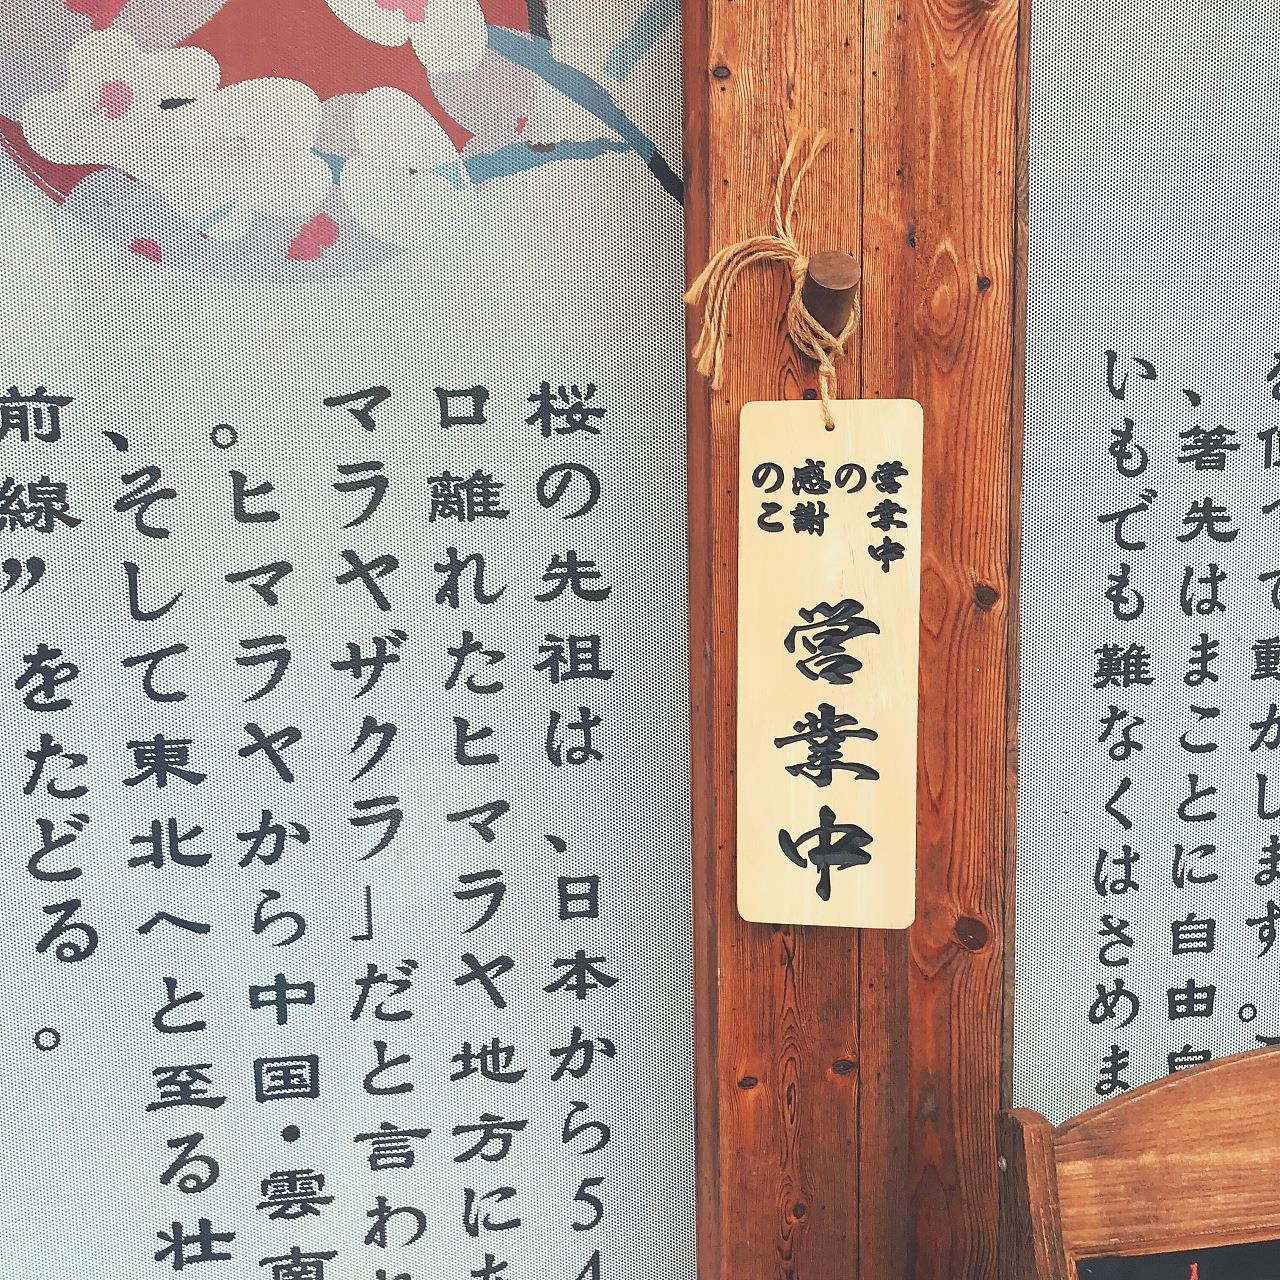 を使って動かします。こ
、箸先はまことに自由自
いもでも難なくはさめま
営業中
の
感謝
のこ
営業中
桜の先祖は、日本から54
ロ離れたヒマラヤ地方に
マラヤザクラ」だと言われ
。ヒマラヤから中国・雲南
、そして東北へと至る壮
前線”をたどる。